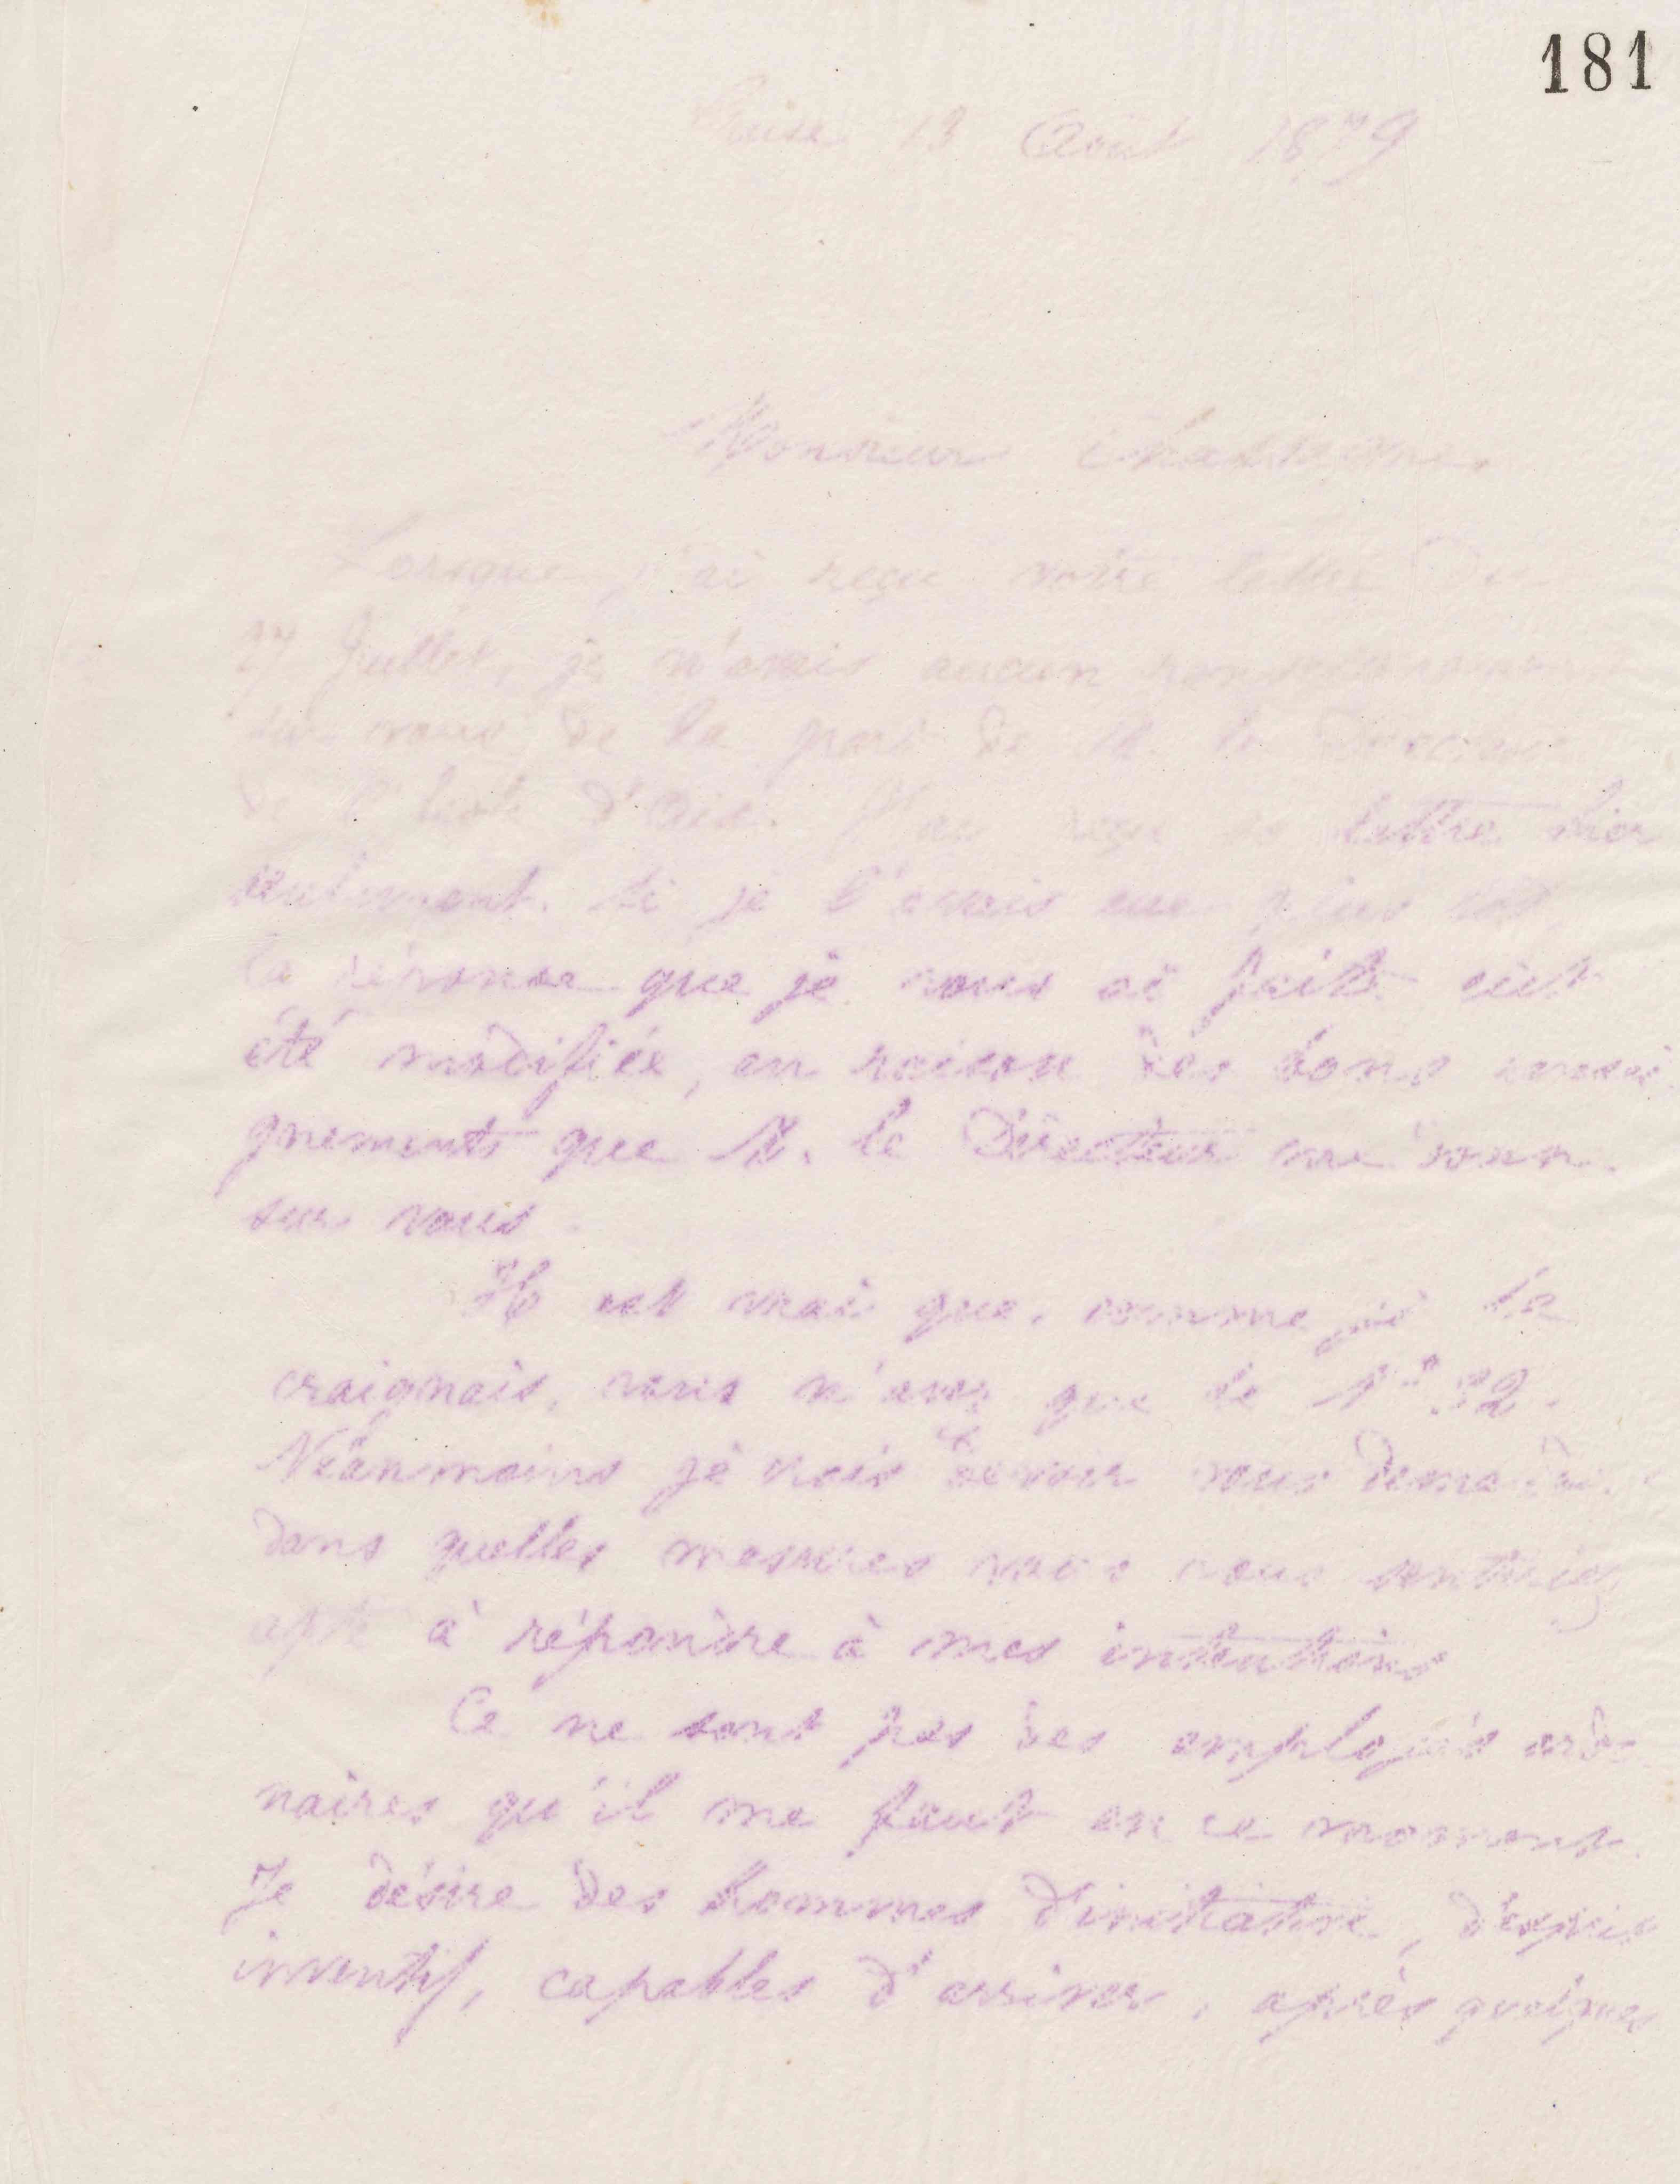 181
Guise 13 Août 1879
Monsieur
Lorsque j'ai reçu votre lettre du
27 Juillet, je n'avais aucun
sur vous de la part de M. le Directeur
de l'Ecole d'Aix. J'ai reçu sa lettre hier
seulement. Si je l'avais eue plus tôt
la réponse que je vous ai faite eut
été modifiée, en raison des bons rensei
gnements que M. le Directeur me donn
sur vous
Il est vrai que, comme je le
craignais, vous n'avez que le 1m 52.
Néanmoins je crois devoir vous demander
dans quelles mesures vous vous sentiriez
apte à répondre à mes intentions
Ce ne sont pas des employés ordi
naires qu'il me faut en ce moment.
Je désire des hommes d'initiative, d'esprit
inventif, capables d'arriver, après quelques